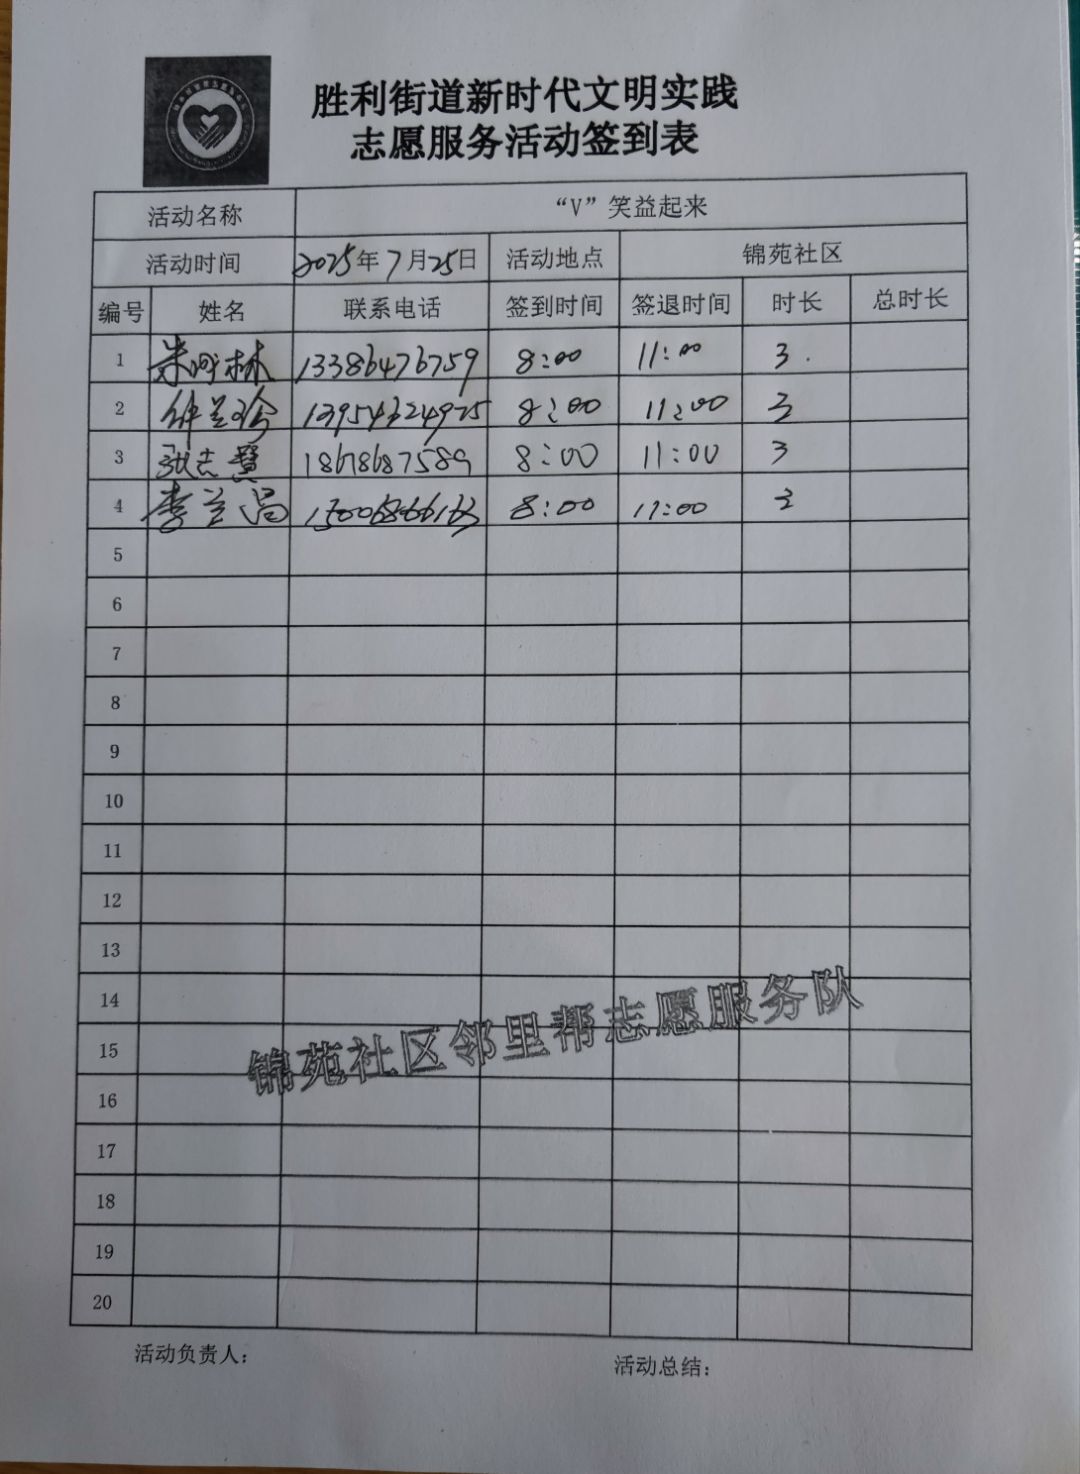 胜利街道新时代文明实践
志愿服务活动签到表
活动名称 “V”笑益起来
活动时间 2025年7月25日 活动地点 锦苑社区
编号 姓名 联系电话 签到时间 签退时间 时长 总时长
1 林 13386476759 8:00 11:00 3
2 8:00 11:00 3
3 张志慧 18678687589 8:00 11:00 3
4 李兰 8:00 11:00 3
5
6
7
8
9
10
11
12
13
14
15
16
17
18
19
20
锦苑社区邻里帮志愿服务队
活动负责人:
活动总结: